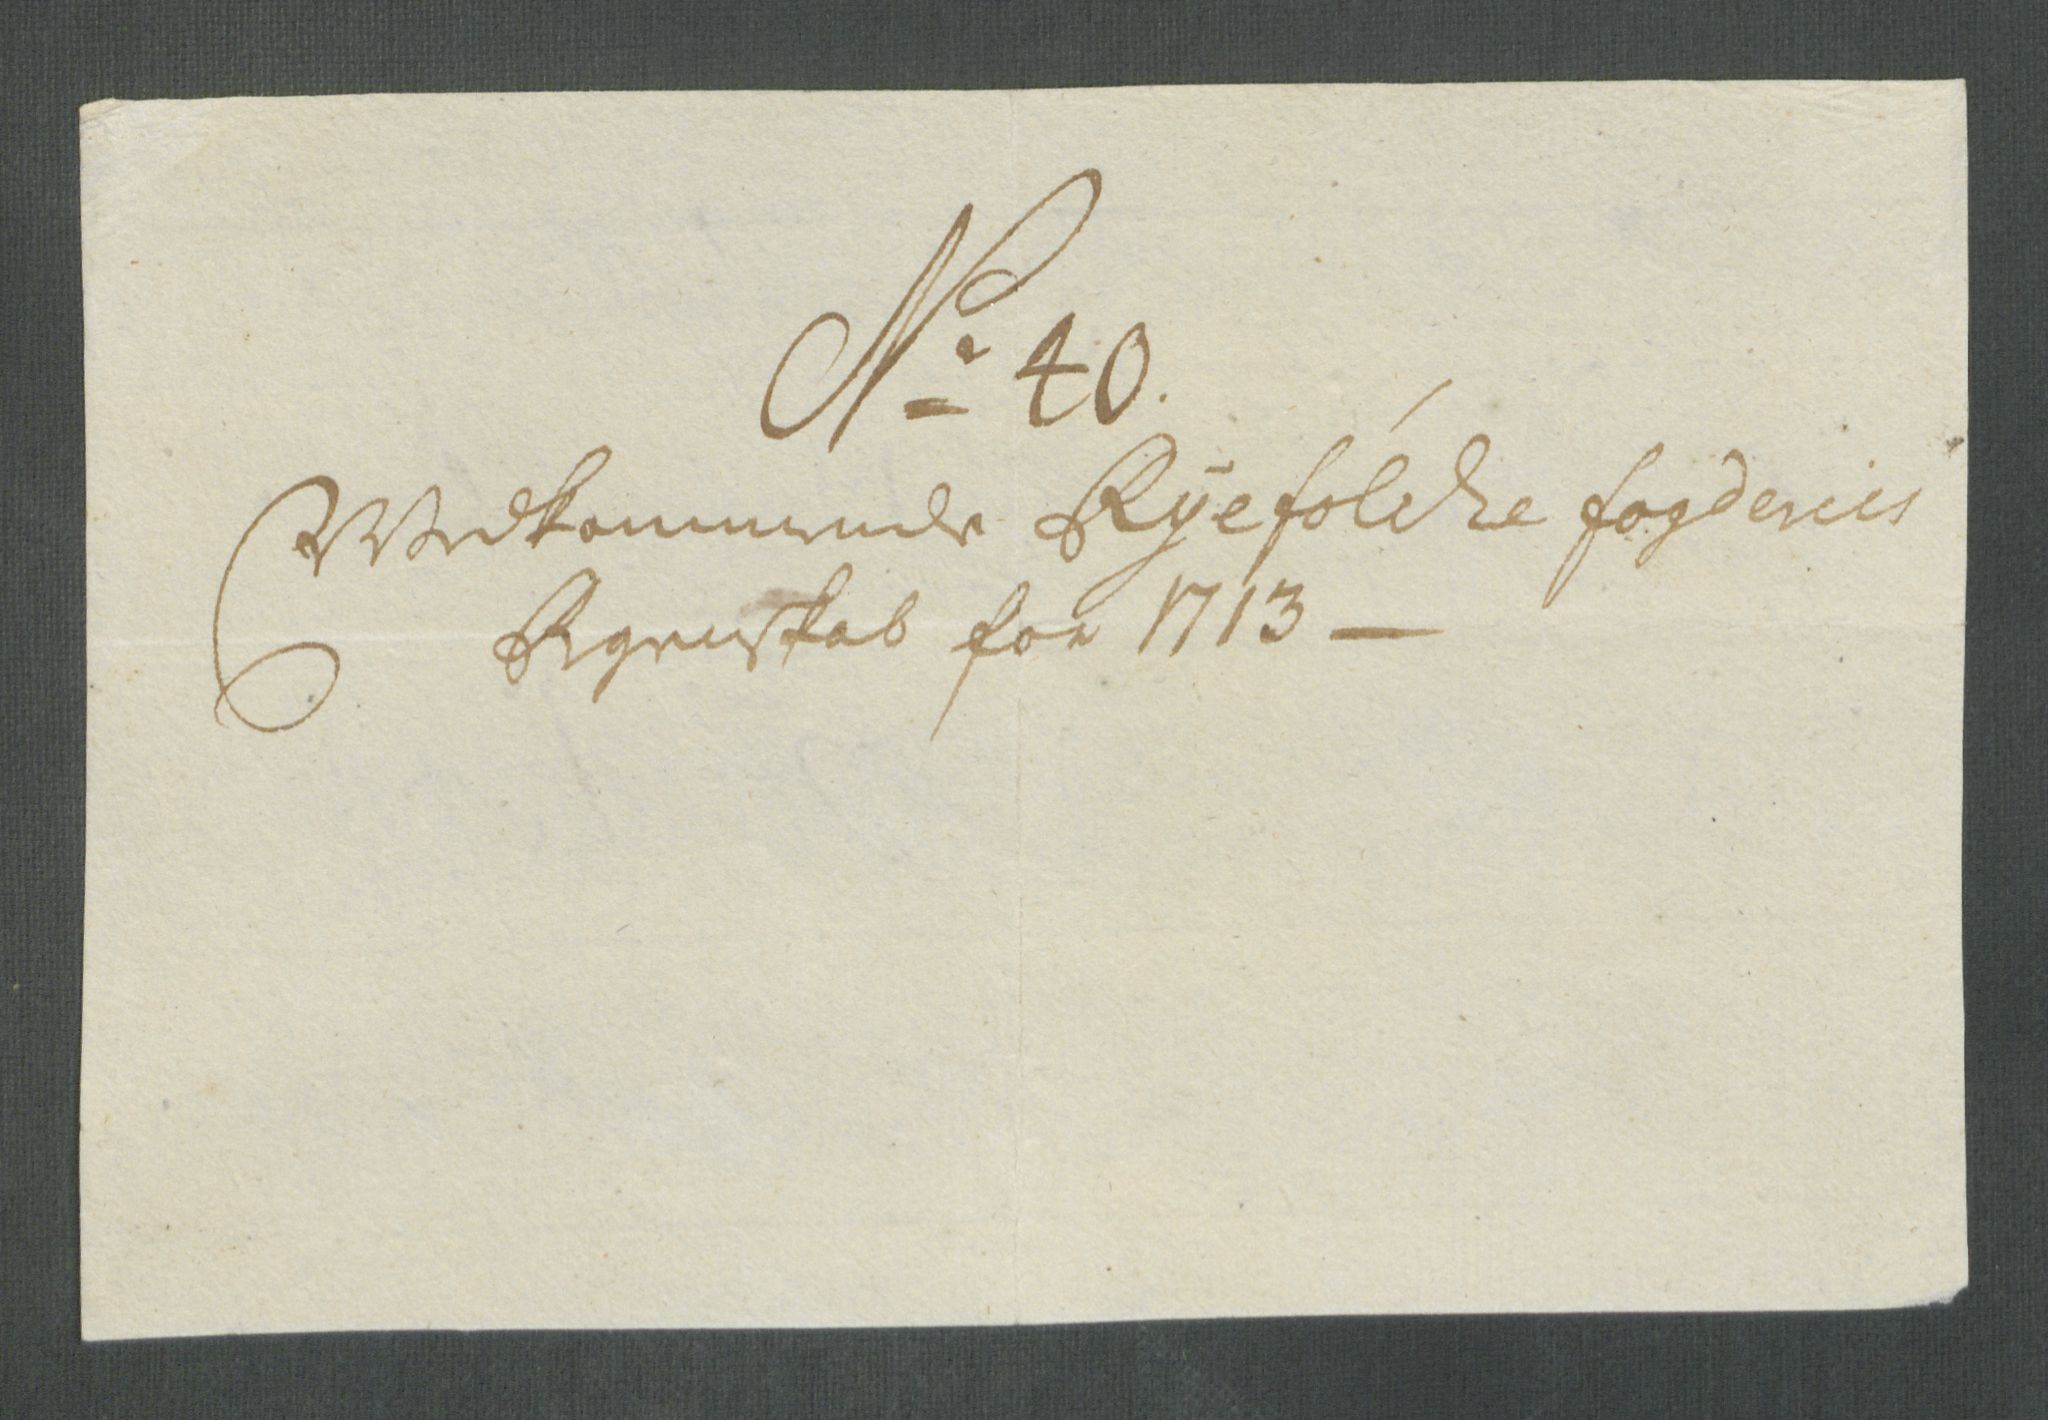 No 40.
Vedkommende Ryefölche fogderies
Regenskab for 1713 —